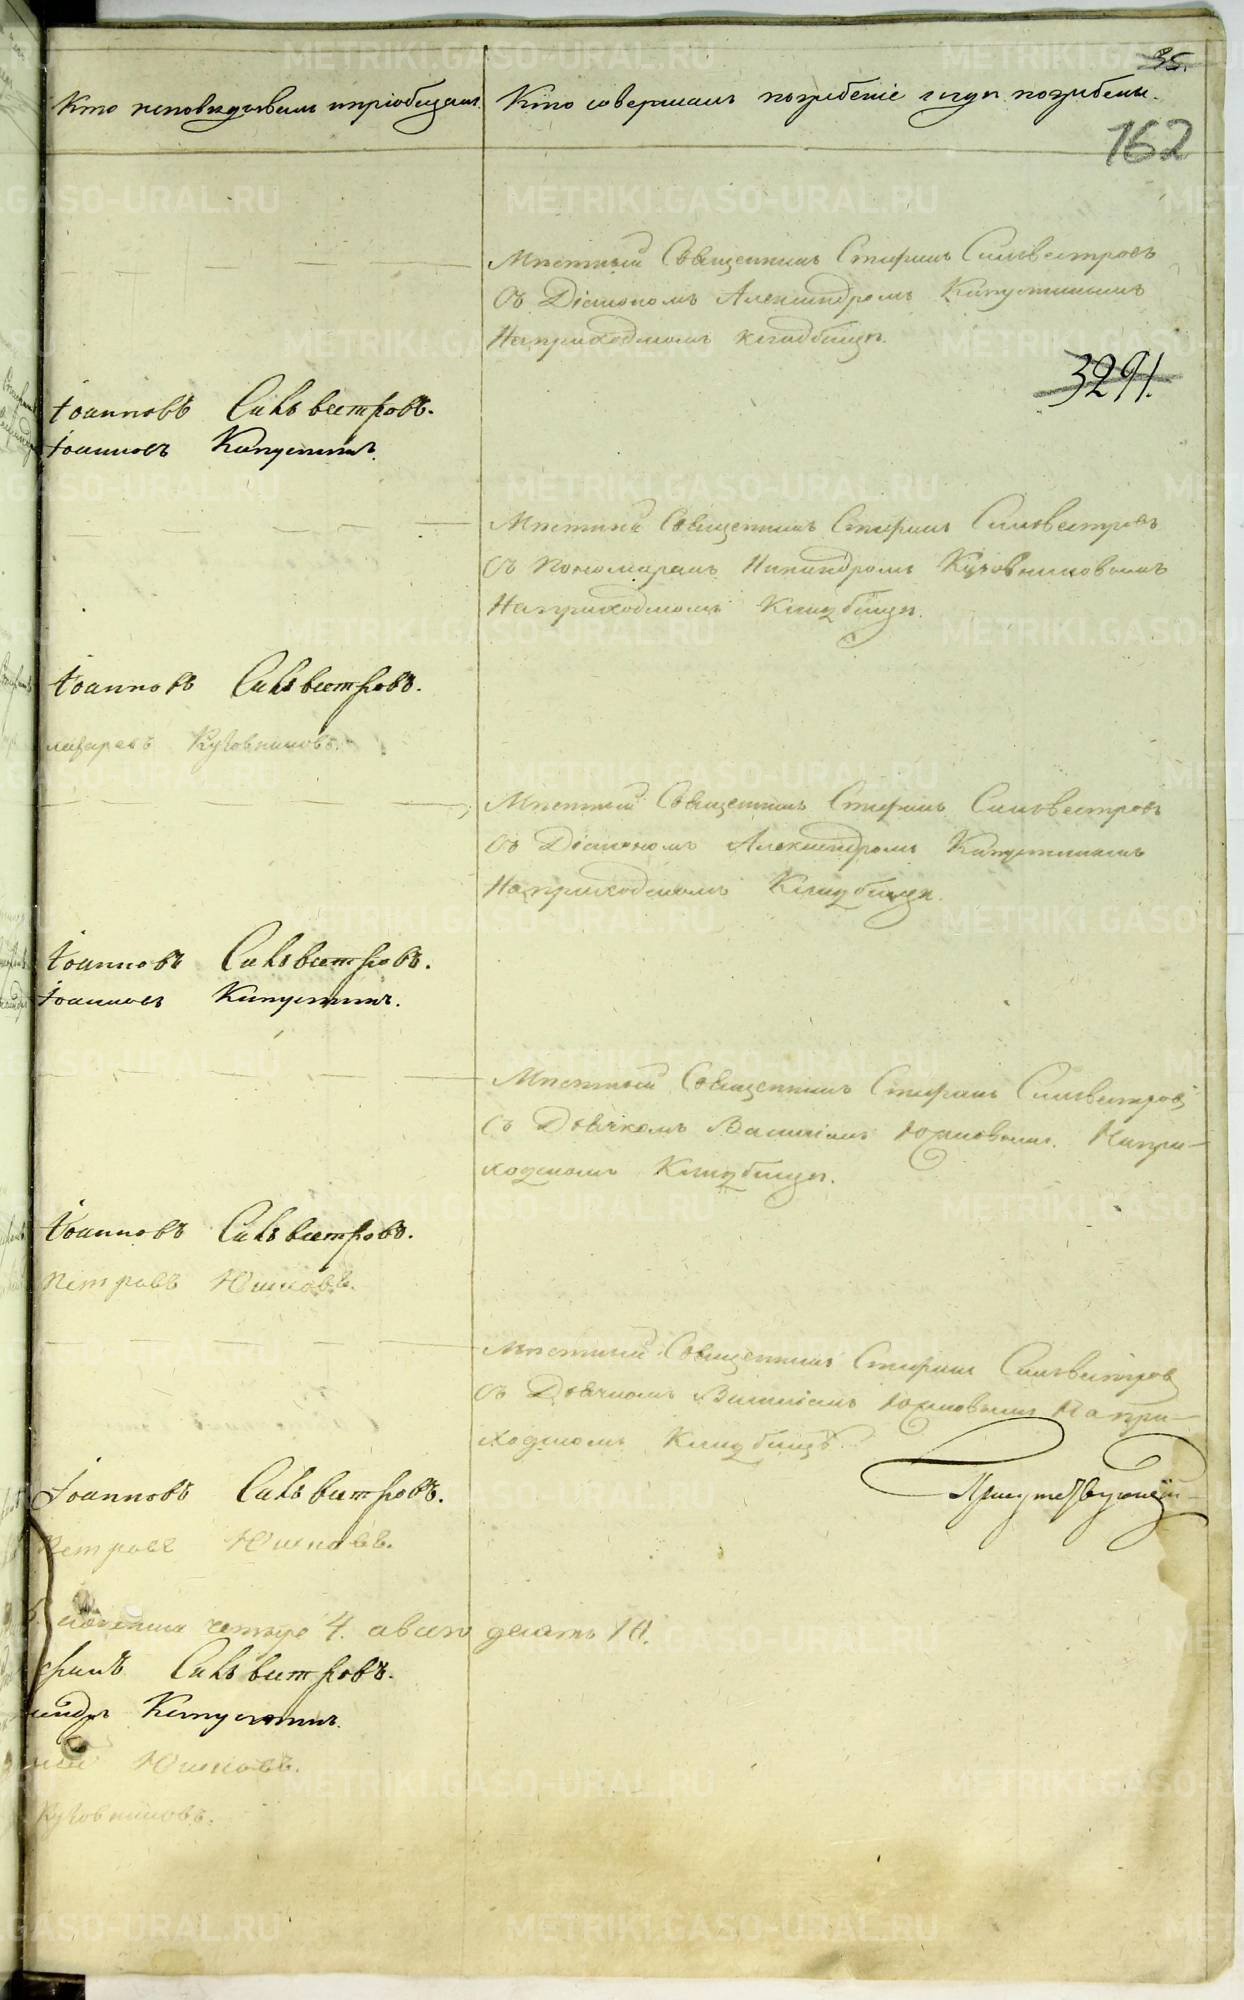 35.
Кто исповѣдывалъ и пріобщалъ. Кто совершалъ погребеніе и гдѣ погребены.
162
Мѣстный Священникъ Стефанъ Сильвестровъ
Съ Діакономъ Александромъ Капустинымъ
На приходскомъ кладбищѣ.
3291.
Іоанновъ Сильвестровъ.
Іоанновъ Капустинъ.
Мѣстный Священникъ Стефанъ Сильвестровъ
Съ Пономаремъ Никандромъ Кузовниковымъ
На приходскомъ Кладбищѣ.
Іоанновъ Сильвестровъ.
Лазаревъ Кузовниковъ.
Мѣстный Священникъ Стефанъ Сильвестровъ
Съ Діакономъ Александромъ Капустинымъ
На приходскомъ Кладбищѣ.
Іоанновъ Сильвестровъ.
Іоанновъ Капустинъ.
Мѣстный Священникъ Стефанъ Сильвестровъ
Съ Дьячкомъ Василіемъ Юшковымъ. На при-
ходскомъ Кладбищѣ.
Іоанновъ Сильвестровъ.
Петровъ Юшковъ.
Мѣстный Священникъ Стефанъ Сильвестровъ
Съ Дьячкомъ Василіемъ Юшковымъ На при-
ходскомъ Кладбищѣ.
Іоанновъ Сильвестровъ.
Присутствующій
Петровъ Юшковъ.
четыре 4. а всего десять 10.
фанъ Сильвестровъ.
андръ Капустинъ.
лій Юшковъ.
Кузовниковъ.
METRIKI.GASO-URAL.RU